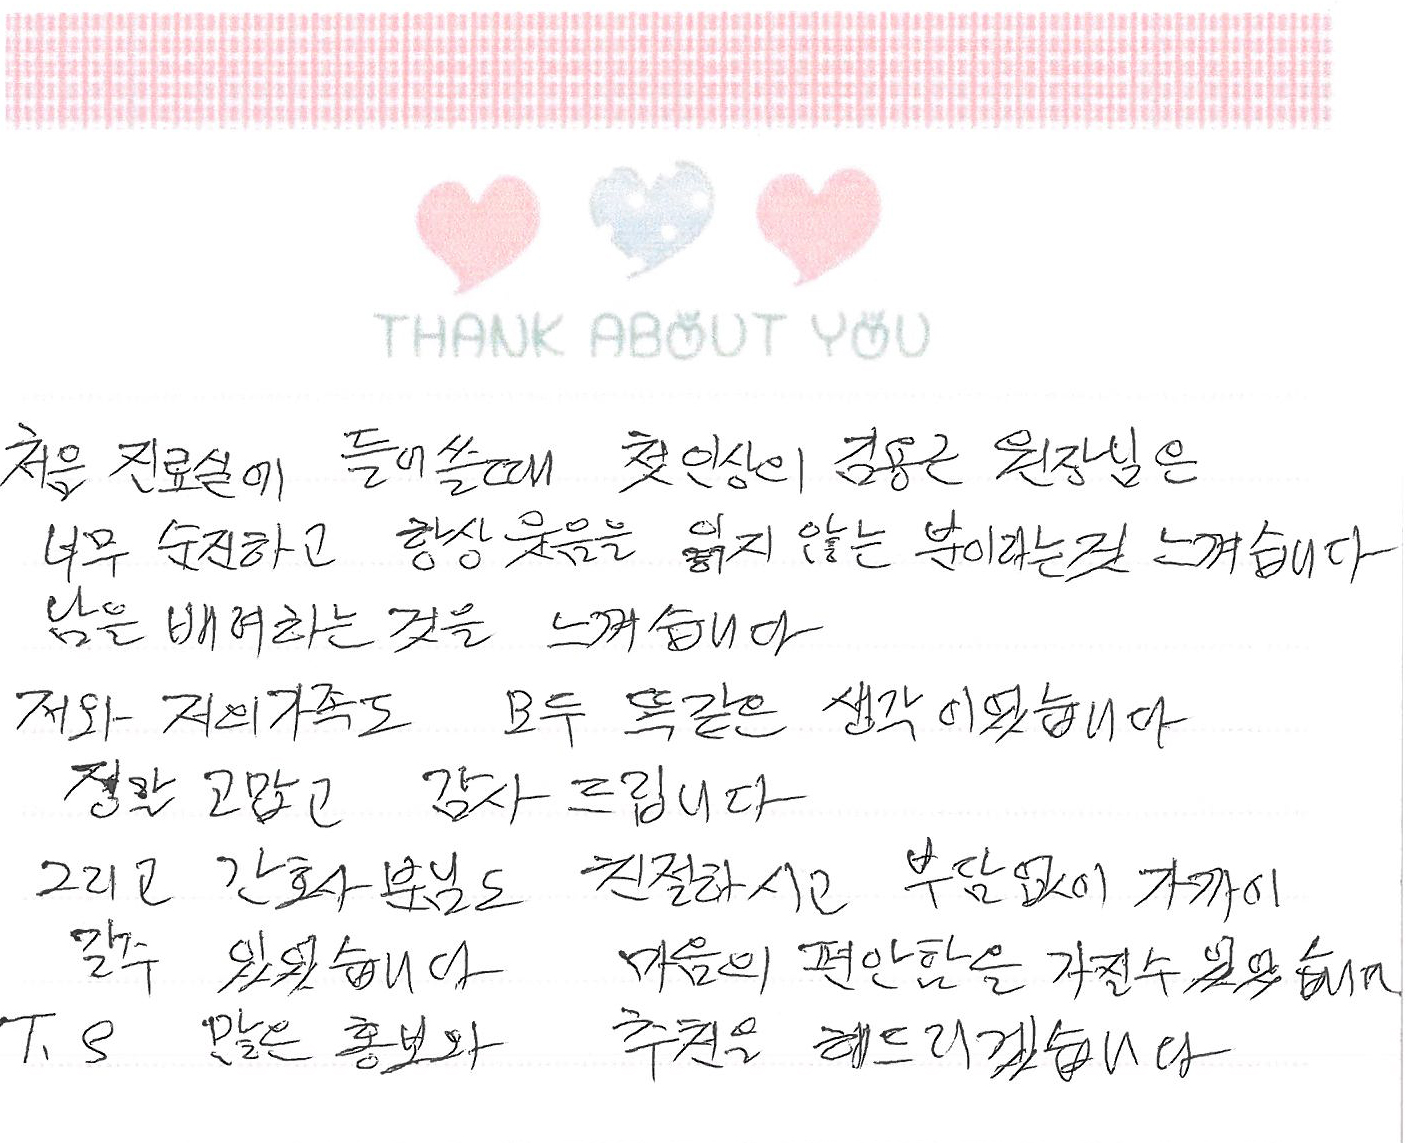 THANK ABOUT YOU
처음 진료실에 들어쓸때 첫인상이 김용근 원장님은
너무 순진하고 항상 웃음을 잃지 않는 분이라는것 느껴습니다
남을 배려하는 것을 느껴습니다
저와 저의가족도 모두 똑같은 생각이였습니다
정말 고맙고 감사 드립니다
그리고 간호사분님도 친절하시고 부담없이 가까이
갈수 있었습니다 마음의 편안함을 가질수 있었습니다
T.S 많은 홍보와 추천을 해드리겠습니다